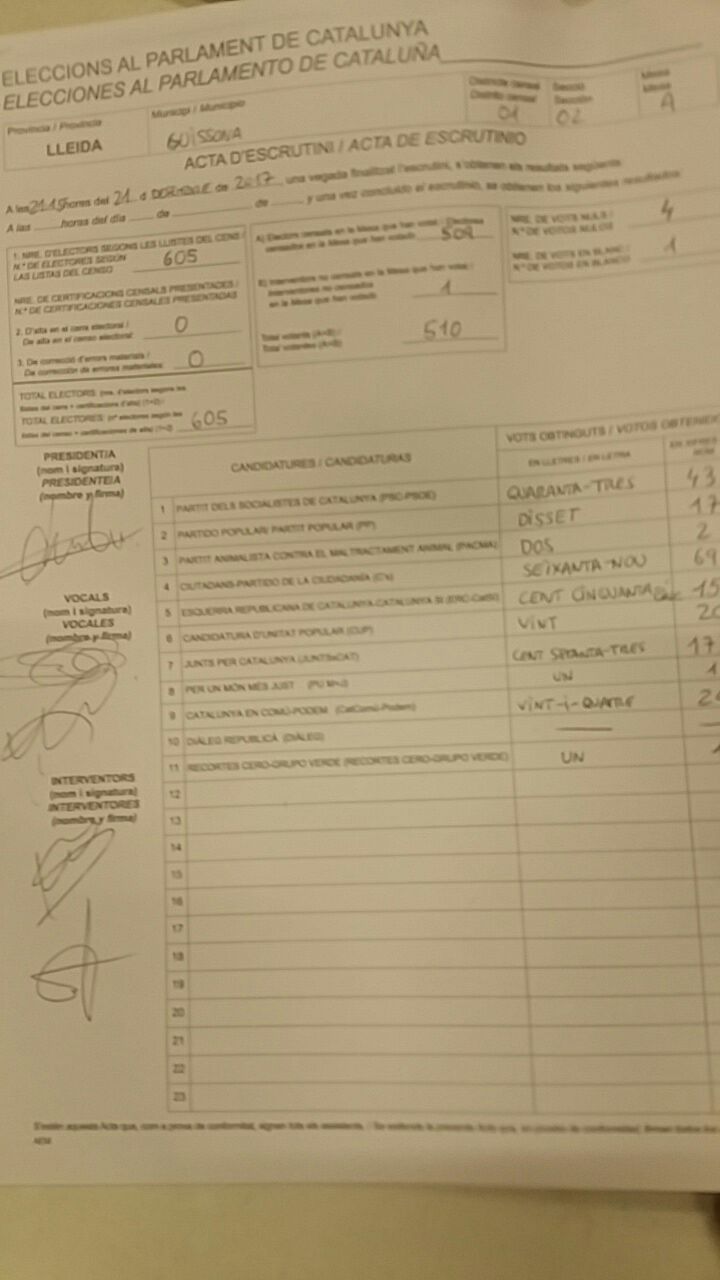 ELECCIONS AL PARLAMENT DE CATALUNYA
ELECCIONES AL PARLAMENTO DE CATALUÑA
Província / Provincia
LLEIDA
Municipi / Municipio
GUISSONA
Districte censal
Distrito censal
01
Secció
Sección
02
Mesa
Mesa
A
ACTA D'ESCRUTINI / ACTA DE ESCRUTINIO
A les hores del 21 d de 2017, una vegada finalitzat l'escrutini, s'obtenen els resultats següents
A las ___ horas del día ___ de ___ de ___ y una vez concluido el escrutinio, se obtienen los siguientes resultados:
1. NRE. D'ELECTORS SEGONS LES LLISTES DEL CENS /
N.º DE ELECTORES SEGÚN
LAS LISTAS DEL CENSO
605
NRE. DE CERTIFICACIONS CENSALS PRESENTADES /
N.º DE CERTIFICACIONES CENSALES PRESENTADAS
2. D'alta en el cens electoral /
De alta en el censo electoral:
0
3. De correcció d'errors materials /
De corrección de errores materiales:
0
TOTAL ELECTORS:
TOTAL ELECTORES:
605
A) Electors censats en la Mesa que han votat / Electores
censados en la Mesa que han votado
509
B) Interventors no censats en la Mesa que han votat /
Interventores no censados
en la Mesa que han votado
1
Total votants (A+B) /
Total votantes (A+B)
510
NRE. DE VOTS NULS /
N.º DE VOTOS NULOS
4
NRE. DE VOTS EN BLANC /
N.º DE VOTOS EN BLANCO
1
PRESIDENT/A
(nom i signatura)
PRESIDENTE/A
(nombre y firma)
VOCALS
(nom i signatura)
VOCALES
(nombre y firma)
INTERVENTORS
(nom i signatura)
INTERVENTORES
(nombre y firma)
CANDIDATURES / CANDIDATURAS
VOTS OBTINGUTS / VOTOS OBTENI
EN LLETRES / EN LETRA
1 PARTIT DELS SOCIALISTES DE CATALUNYA (PSC-PSOE) QUARANTA-TRES 43
2 PARTIDO POPULAR/ PARTIT POPULAR (PP) DISSET 17
3 PARTIT ANIMALISTA CONTRA EL MALTRACTAMENT ANIMAL (PACMA) DOS 2
4 CIUTADANS-PARTIDO DE LA CIUDADANÍA (C's) SEIXANTA-NOU 69
5 ESQUERRA REPUBLICANA DE CATALUNYA-CATALUNYA SÍ (ERC-CatSí) CENT CINQUANTA 15
6 CANDIDATURA D'UNITAT POPULAR (CUP) VINT 20
7 JUNTS PER CATALUNYA (JUNTSxCAT) CENT SETANTA-TRES 17
8 PER UN MÓN MÉS JUST (PUM+J) UN 1
9 CATALUNYA EN COMÚ-PODEM (CatComú-Podem) VINT-I-QUATRE 2
10 DIÀLEG REPUBLICÀ (DIÀLEG) —
11 RECORTES CERO-GRUPO VERDE (RECORTES CERO-GRUPO VERDE) UN 1
12
13
14
15
16
17
18
19
20
21
22
23